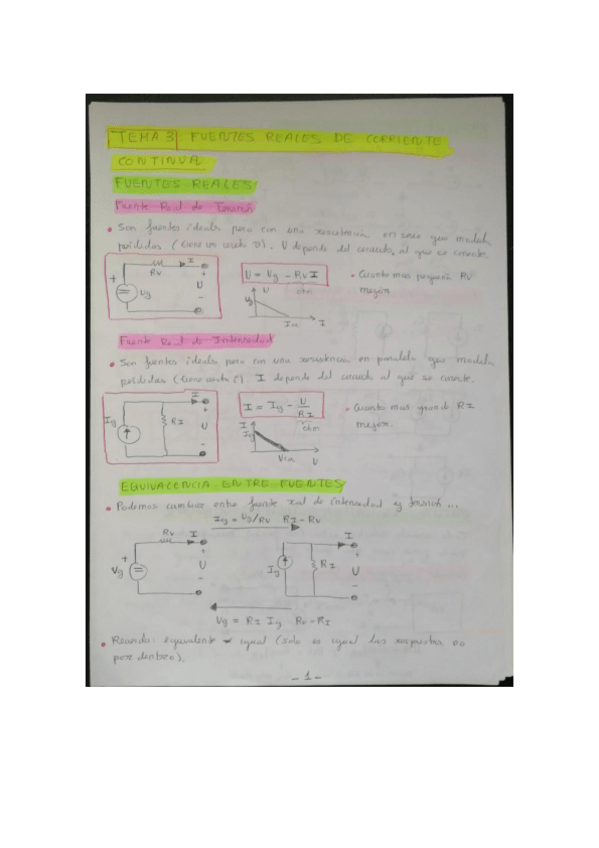 TEMA 3 FUENTES REALES DE CORRIENTE
CONTINUA
FUENTES REALES
Fuente Real de Tensión
• Son fuentes ideales pero con una resistencia en serie que modela
pérdidas (tiene un cierto v). U depende del circuito al que se conecte.
+ Ug Rv I + U -
U = Vg - RvI
ohm
U Vg Icc I
• Cuanto mas pequeña Rv
mejor.
Fuente Real de Intensidad
• Son fuentes ideales pero con una resistencia en paralelo que modela
pérdidas I depende del circuito al que se conecte.
Ig RI I + U -
I = Ig - U/RI
ohm
I Ig Vca U
• Cuanto mas grande RI
mejor.
EQUIVALENCIA ENTRE FUENTES
• Podemos cambiar entre fuente real de intensidad y tensión ...
Ig = Vg/Rv RI = Rv
+ Vg Rv I + U -
Ig RI I + U -
Vg = RI Ig Rv = RI
• Recuerda: equivalente ≠ igual (solo es igual las respuestas no
por dentro).
- 1 -